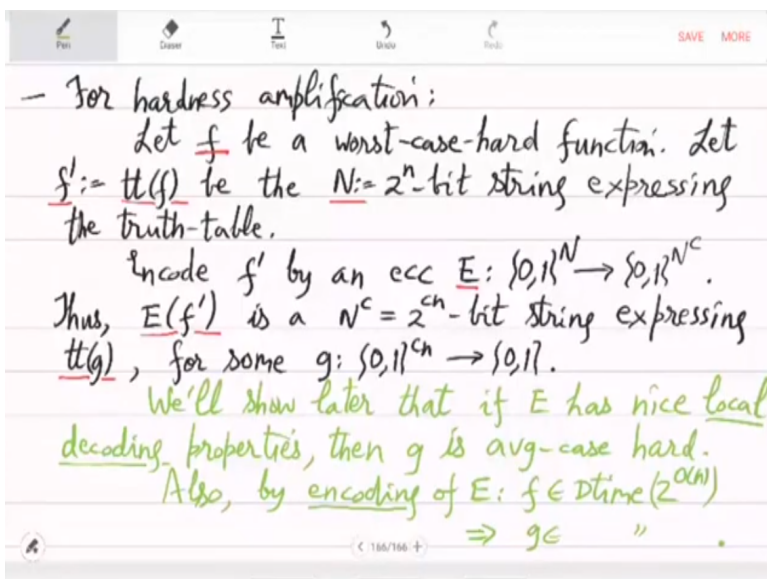 Pen Eraser Text Undo Redo SAVE MORE
— For hardness amplification:
Let f be a worst-case-hard function. Let
f' := tt(f) be the N := 2^n-bit string expressing
the truth-table.
Encode f' by an ecc E: {0,1}^N → {0,1}^{N^c}.
Thus, E(f') is a N^c = 2^{cn}-bit string expressing
tt(g), for some g: {0,1}^{cn} → {0,1}.
We'll show later that if E has nice local
decoding properties, then g is avg-case hard.
Also, by encoding of E: f ∈ Dtime(2^{O(n)})
⇒ g ∈ " .
< 166/166 +